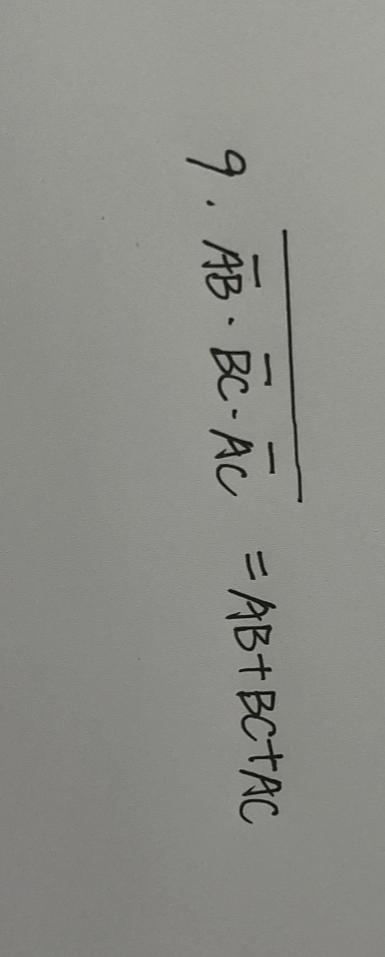 9. $\overline{\overline{AB} \cdot \overline{BC} \cdot \overline{AC}} = AB+BC+AC$